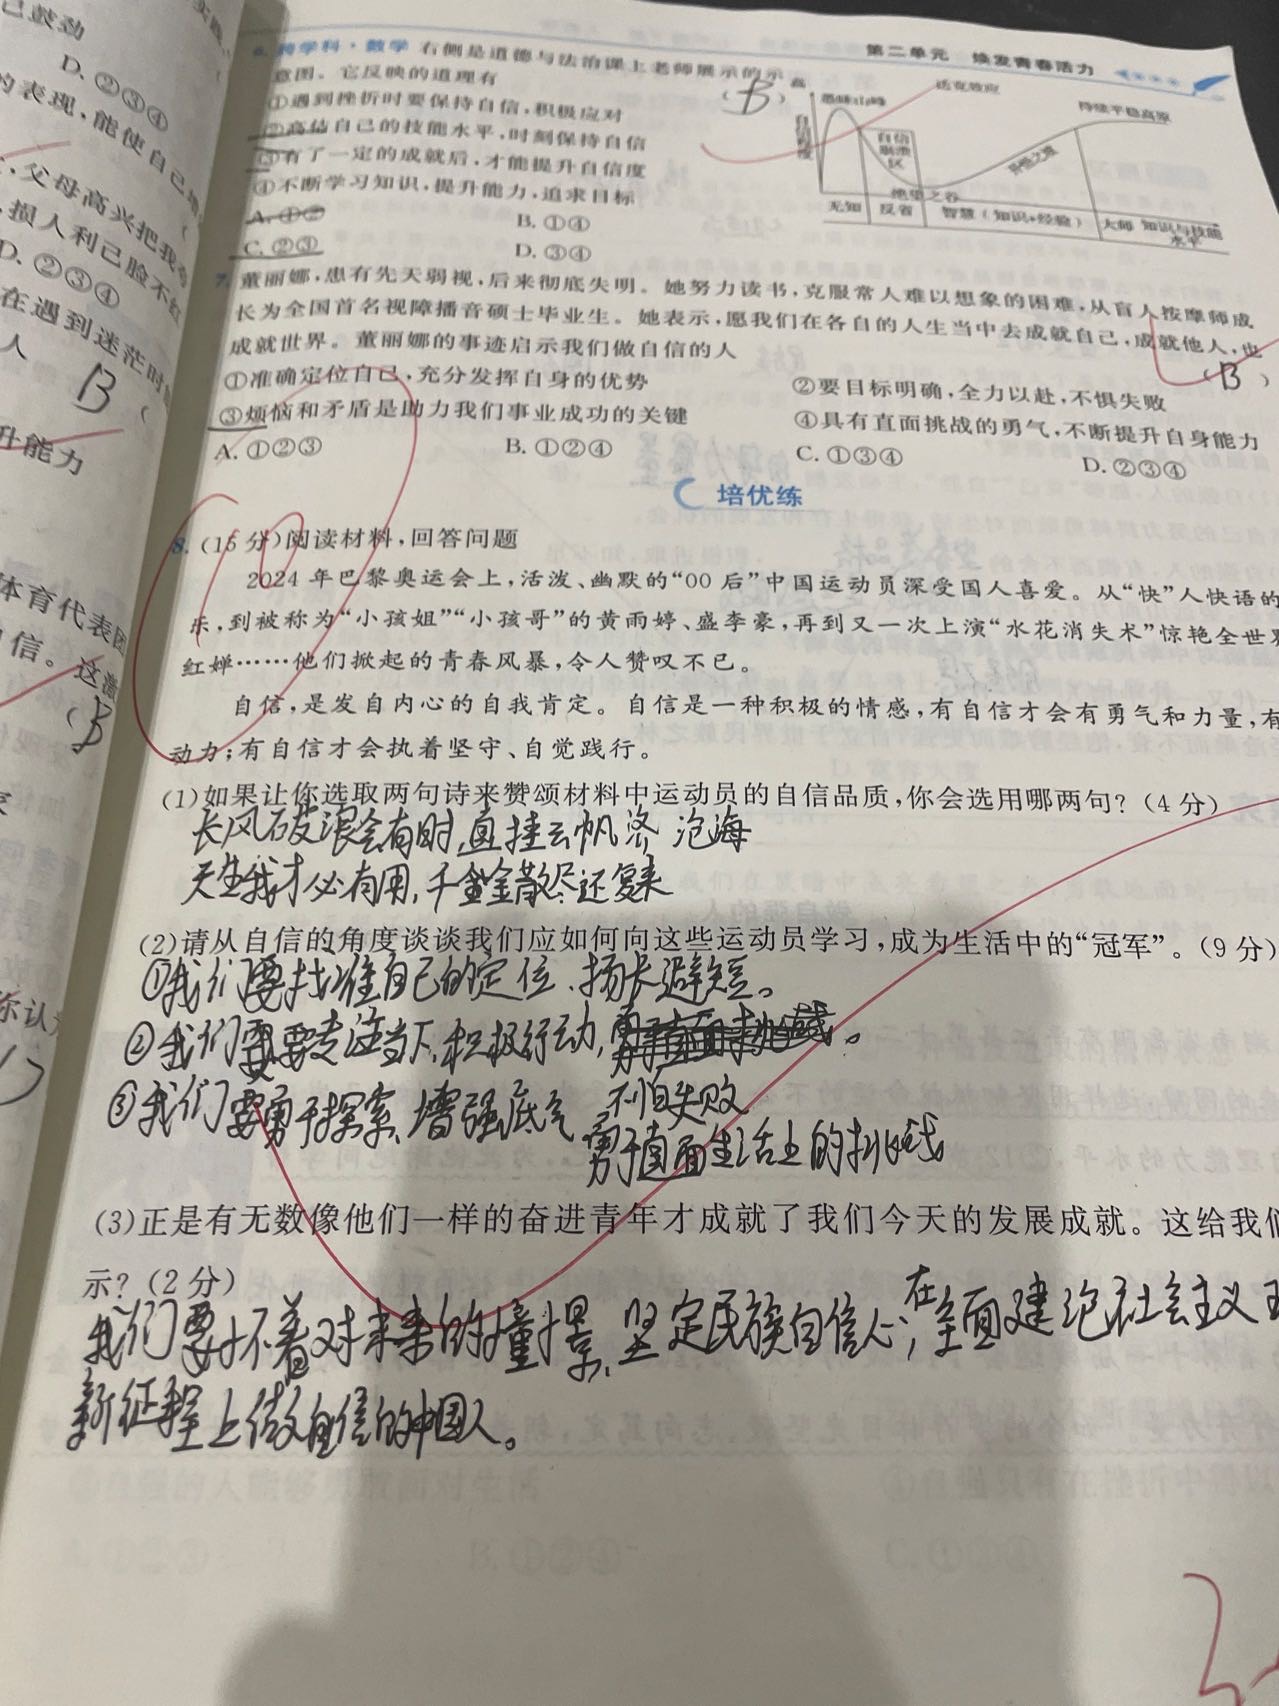 己鼓劲
D. ②③④
的表现，能使自己增
父母高兴把我
损人利己脸不红
D. ②③④
在遇到迷茫时
人
B
升能力
体育代表团
信。这
(B
你认为
第二单元 焕发青春活力
6. 跨学科·数学 右侧是道德与法治课上老师展示的示
意图。它反映的道理有
(B)
①遇到挫折时要保持自信，积极应对
②高估自己的技能水平，时刻保持自信
③有了一定的成就后，才能提升自信度
④不断学习知识，提升能力，追求目标
A. ①②
B. ①④
C. ②③
D. ③④
高
自信程度
愚昧山峰
达克效应
持续平稳高原
自信崩溃区
开悟之坡
绝望之谷
无知 反省 智慧（知识+经验） 大师 知识与技能水平
7. 董丽娜，患有先天弱视，后来彻底失明。她努力读书，克服常人难以想象的困难，从盲人按摩师成
长为全国首名视障播音硕士毕业生。她表示，愿我们在各自的人生当中去成就自己，成就他人，也
成就世界。董丽娜的事迹启示我们做自信的人
(B)
①准确定位自己，充分发挥自身的优势
②要目标明确，全力以赴，不惧失败
③烦恼和矛盾是助力我们事业成功的关键
④具有直面挑战的勇气，不断提升自身能力
A. ①②③
B. ①②④
C. ①③④
D. ②③④
培优练
8. (15分)阅读材料，回答问题
2024年巴黎奥运会上，活泼、幽默的“00后”中国运动员深受国人喜爱。从“快”人快语的
乐，到被称为“小孩姐”“小孩哥”的黄雨婷、盛李豪，再到又一次上演“水花消失术”惊艳全世界
红婵……他们掀起的青春风暴，令人赞叹不已。
自信，是发自内心的自我肯定。自信是一种积极的情感，有自信才会有勇气和力量，有
动力；有自信才会执着坚守、自觉践行。
(1)如果让你选取两句诗来赞颂材料中运动员的自信品质，你会选用哪两句？(4分)
长风破浪会有时，直挂云帆济沧海
天生我才必有用，千金散尽还复来
(2)请从自信的角度谈谈我们应如何向这些运动员学习，成为生活中的“冠军”。(9分)
①我们要找准自己的定位、扬长避短。
②我们要专注当下、积极行动，勇于直面挑战。
不怕失败
③我们要勇于探索、增强底气
勇于直面生活上的挑战
(3)正是有无数像他们一样的奋进青年才成就了我们今天的发展成就。这给我们
示？(2分)
我们要怀着对未来的憧憬、坚定民族自信心，在全面建设社会主义
新征程上做自信的中国人。